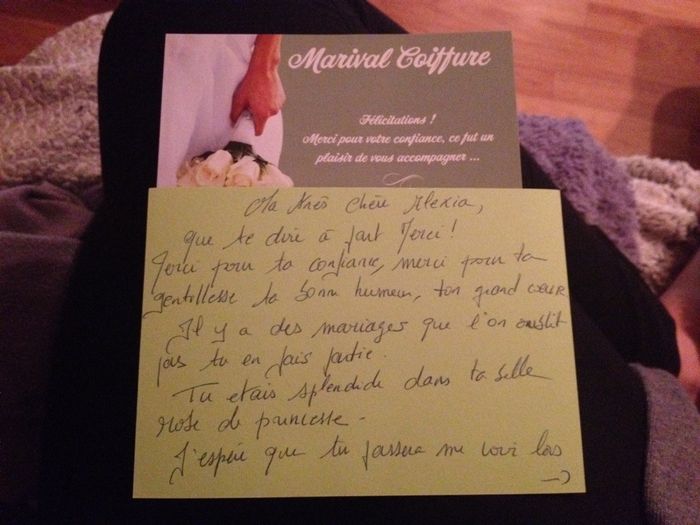 Marival Coiffure
Félicitations !
Merci pour votre confiance, ce fut un
plaisir de vous accompagner ...
Ma très chère Alexia,
que te dire à part Merci !
Merci pour ta confiance, merci pour ta
gentillesse ta bonn humeur, ton grand coeur
Il y a des mariages que l'on oublit
pas tu en fais partie.
Tu etais splendide dans ta belle
robe de princesse -
J'espère que tu passera me voir lors
→